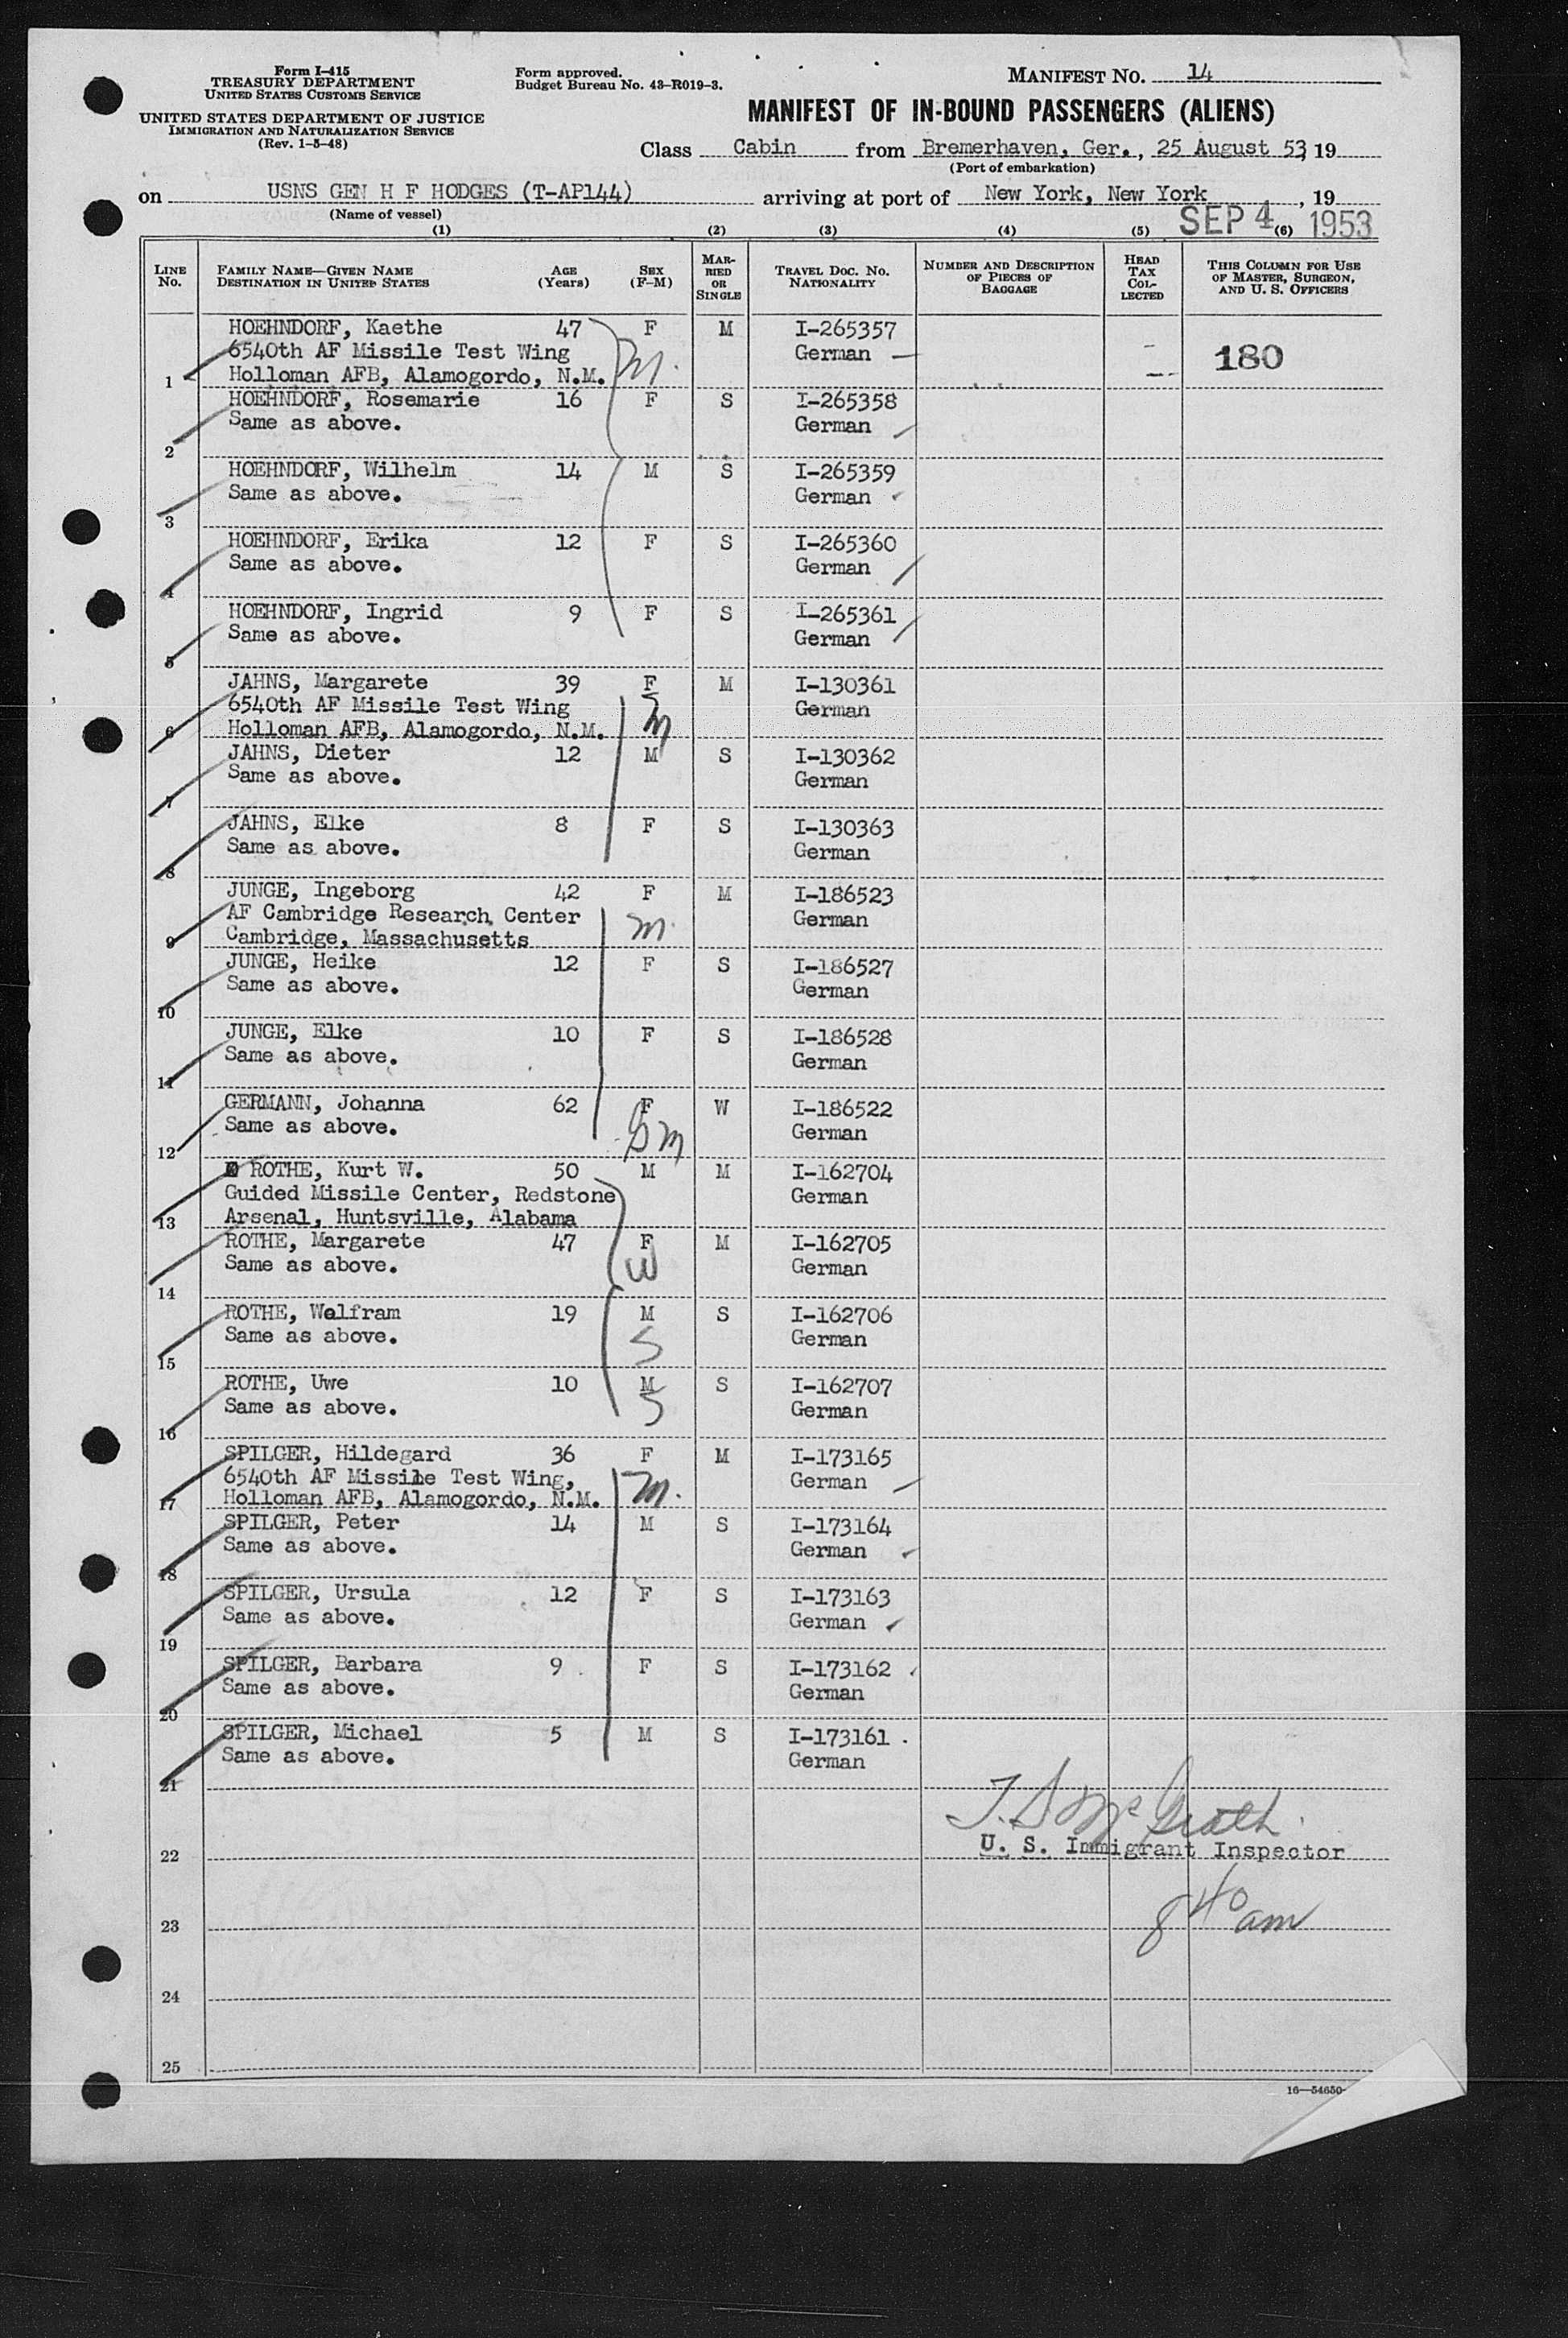 Form I-415
TREASURY DEPARTMENT
UNITED STATES CUSTOMS SERVICE
UNITED STATES DEPARTMENT OF JUSTICE
IMMIGRATION AND NATURALIZATION SERVICE
(Rev. 1-5-48)
Form approved.
Budget Bureau No. 43-R019-3.
MANIFEST NO. 14
MANIFEST OF IN-BOUND PASSENGERS (ALIENS)
Class Cabin from Bremerhaven, Ger., 25 August 53, 19
(Port of embarkation)
on USNS GEN H F HODGES (T-AP144) arriving at port of New York, New York, 19
(Name of vessel)
SEP 4 1953
(1) (2) (3) (4) (5) (6)
LINE NO.
FAMILY NAME—GIVEN NAME
DESTINATION IN UNITED STATES
AGE (Years)
SEX (F-M)
MARRIED OR SINGLE
TRAVEL DOC. NO. NATIONALITY
NUMBER AND DESCRIPTION OF PIECES OF BAGGAGE
HEAD TAX COLLECTED
THIS COLUMN FOR USE OF MASTER, SURGEON, AND U. S. OFFICERS
HOEHNDORF, Kaethe 47 F M I-265357
6540th AF Missile Test Wing German 180
1 Holloman AFB, Alamogordo, N.M. M.
HOEHNDORF, Rosemarie 16 F S I-265358
Same as above. German
2
HOEHNDORF, Wilhelm 14 M S I-265359
Same as above. German
3
HOEHNDORF, Erika 12 F S I-265360
Same as above. German
4
HOEHNDORF, Ingrid 9 F S I-265361
Same as above. German
5
JAHNS, Margarete 39 F M I-130361
6540th AF Missile Test Wing German
6 Holloman AFB, Alamogordo, N.M. M
JAHNS, Dieter 12 M S I-130362
Same as above. German
7
JAHNS, Elke 8 F S I-130363
Same as above. German
8
JUNGE, Ingeborg 42 F M I-186523
AF Cambridge Research Center M. German
9 Cambridge, Massachusetts
JUNGE, Heike 12 F S I-186527
Same as above. German
10
JUNGE, Elke 10 F S I-186528
Same as above. German
11
GERMANN, Johanna 62 F W I-186522
Same as above. German
12
ROTHE, Kurt W. 50 M M I-162704
Guided Missile Center, Redstone German
13 Arsenal, Huntsville, Alabama
ROTHE, Margarete 47 F M I-162705
Same as above. W German
14
ROTHE, Wolfram 19 M S I-162706
Same as above. S German
15
ROTHE, Uwe 10 M S I-162707
Same as above. S German
16
SPILGER, Hildegard 36 F M I-173165
6540th AF Missile Test Wing, M. German
17 Holloman AFB, Alamogordo, N.M.
SPILGER, Peter 14 M S I-173164
Same as above. German
18
SPILGER, Ursula 12 F S I-173163
Same as above. German
19
SPILGER, Barbara 9 F S I-173162
Same as above. German
20
SPILGER, Michael 5 M S I-173161
Same as above. German
21
22 U. S. Immigrant Inspector
23 8 40 am
24
25